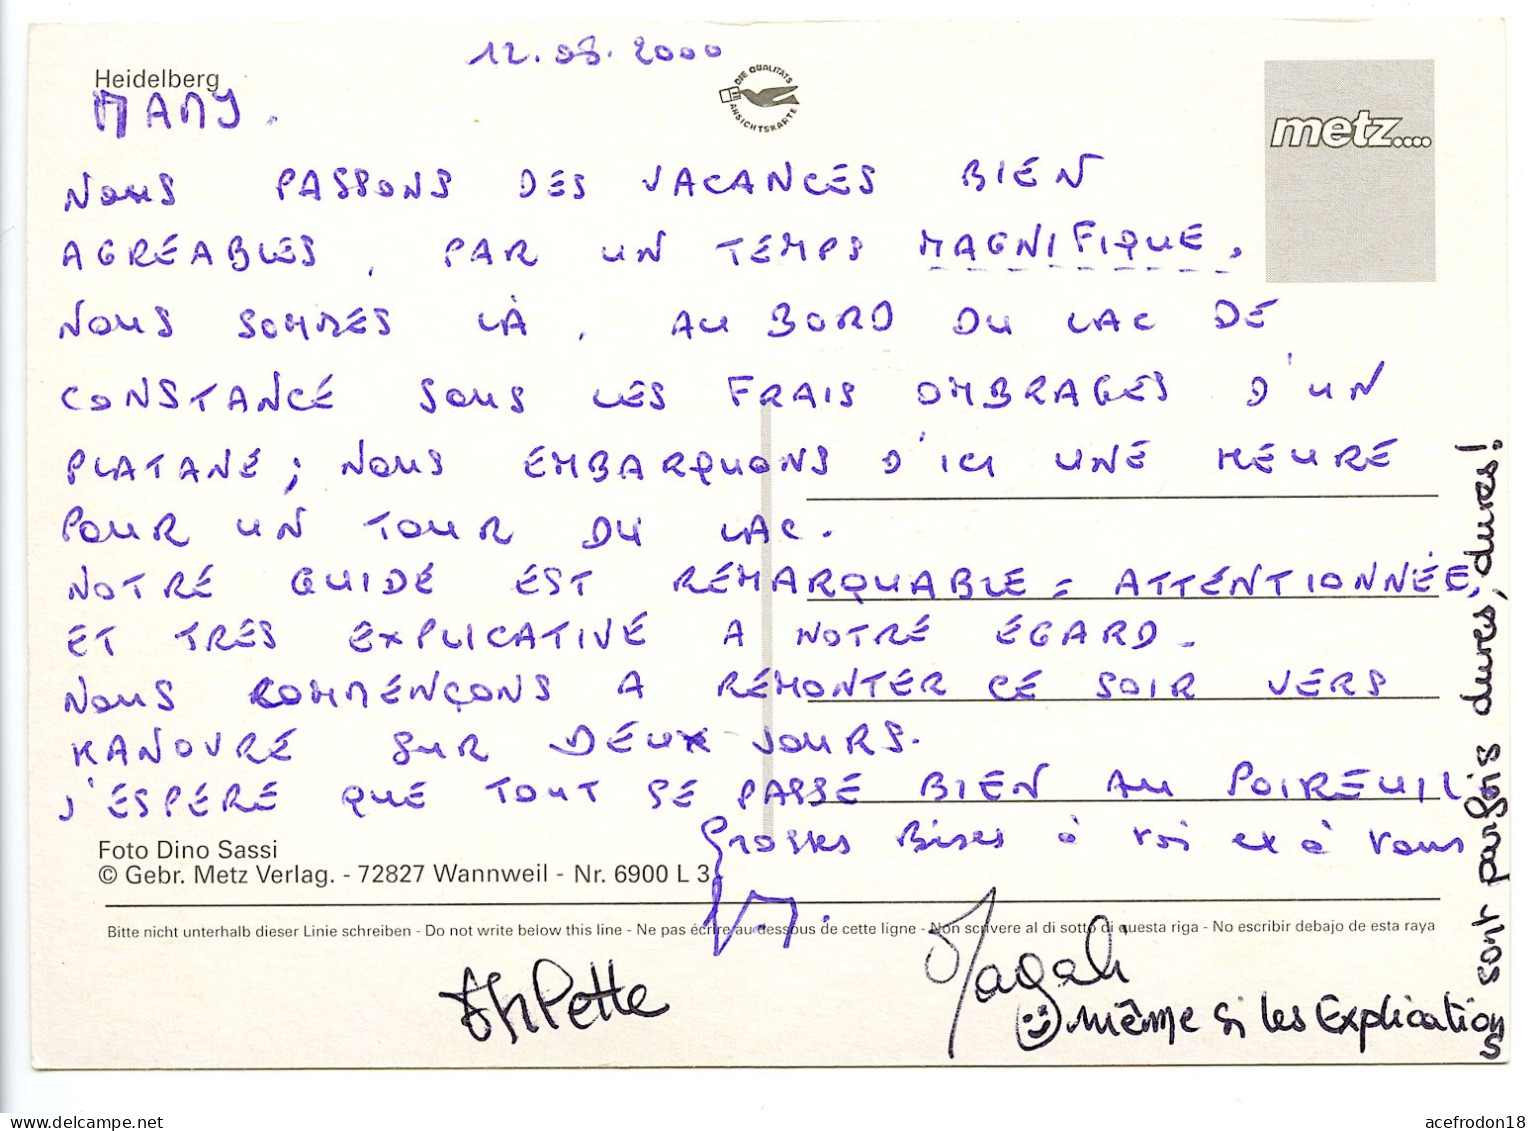 12.08.2000
Heidelberg
DIE QUALITÄTS ANSICHTSKARTE
metz....
MAMY.
NOUS PASSONS DES VACANCES BIEN
AGRÉABLES, PAR UN TEMPS MAGNIFIQUE.
NOUS SOMMES LÀ, AU BORD DU LAC DE
CONSTANCE SOUS LES FRAIS OMBRAGES D'UN
PLATANE; NOUS EMBARQUONS D'ICI UNE HEURE
POUR UN TOUR DU LAC.
NOTRE GUIDE EST REMARQUABLE = ATTENTIONNÉE,
ET TRES EXPLICATIVE A NOTRE ÉGARD.
NOUS COMMENÇONS A REMONTER CE SOIR VERS
HANOVRE SUR DEUX JOURS.
J'ESPERE QUE TOUT SE PASSE BIEN AU POIREUIL
Grosses Bises à toi et à vous
Foto Dino Sassi
© Gebr. Metz Verlag. - 72827 Wannweil - Nr. 6900 L 3
Bitte nicht unterhalb dieser Linie schreiben - Do not write below this line - Ne pas écrire au-dessous de cette ligne - Non scrivere al di sotto di questa riga - No escribir debajo de esta raya
Magali
même si les Explications
sont parfois dures, dures!
acefrodon18